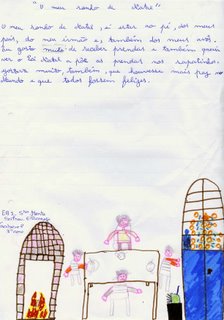 "O meu sonho de Natal"
O meu sonho de Natal, é estar ao pé, dos meus
pais, do meu irmão e, também dos meus avós.
Eu gosto muito de receber prendas e também queria
ver o Pai Natal a pôr as prendas nos sapatinhos
gostava muito, também, que houvesse mais paz no
Mundo e que todos fossem felizes.
EB1, Stª Marta